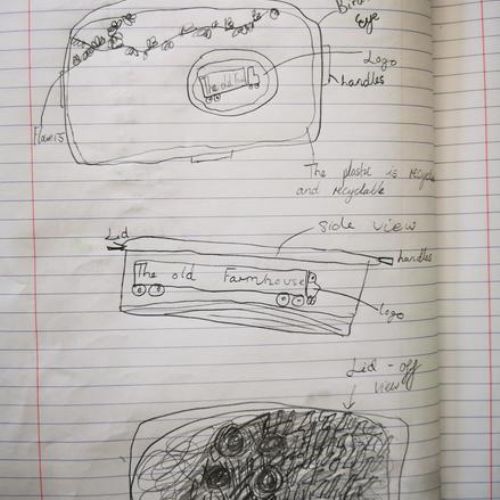 Eye
Logo
The old
handles
Flowers
The plastic is
and recyclable
side view
Lid
handles
The old Farmhouse
logo
Lid - off
view